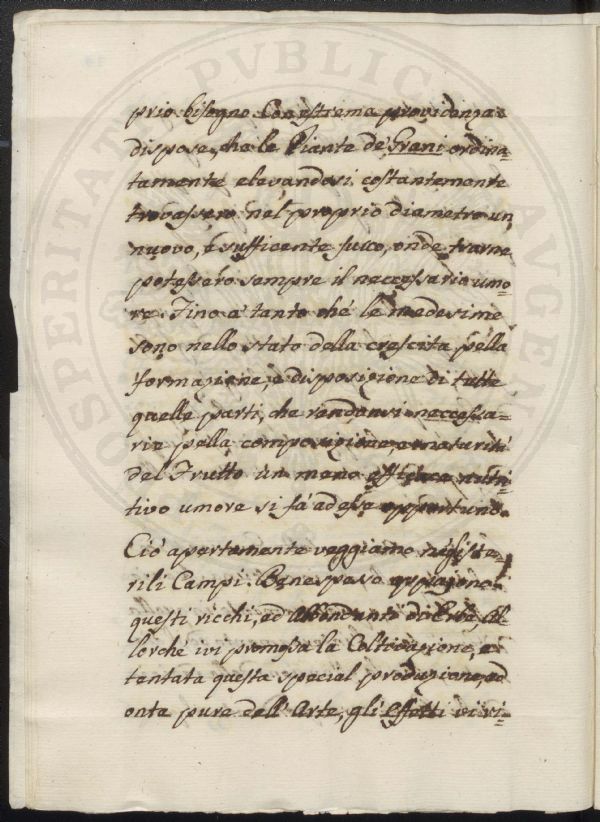 prio bisogno. Con estrema providenza
dispose, che le Piante de' Grani ordina-
tamente elevandosi costantemente
trovassero nel proprio diametro un
nuovo, e sufficente suco, onde trarne
potessero sempre il necessario umo-
re. Fino a tanto che le medesime
sono nello stato della crescita pella
formazione, e disposizione di tutte
quelle parti, che rendonsi necessa-
rie pella composizione, e maturità
del Frutto un meno efficace nutri-
tivo umore si fà ad esse opportuno.
Ciò apertamente veggiamo negli ste-
rili Campi. Bene spesso appajono
questi ricchi, ed abbondanti di Erbe al-
lorché ivi promossa la Coltivazione, e
tentata questa special produzione, ad
onta pure dell'Arte, gli effetti vi ri-
PUBLIC
AUGEN